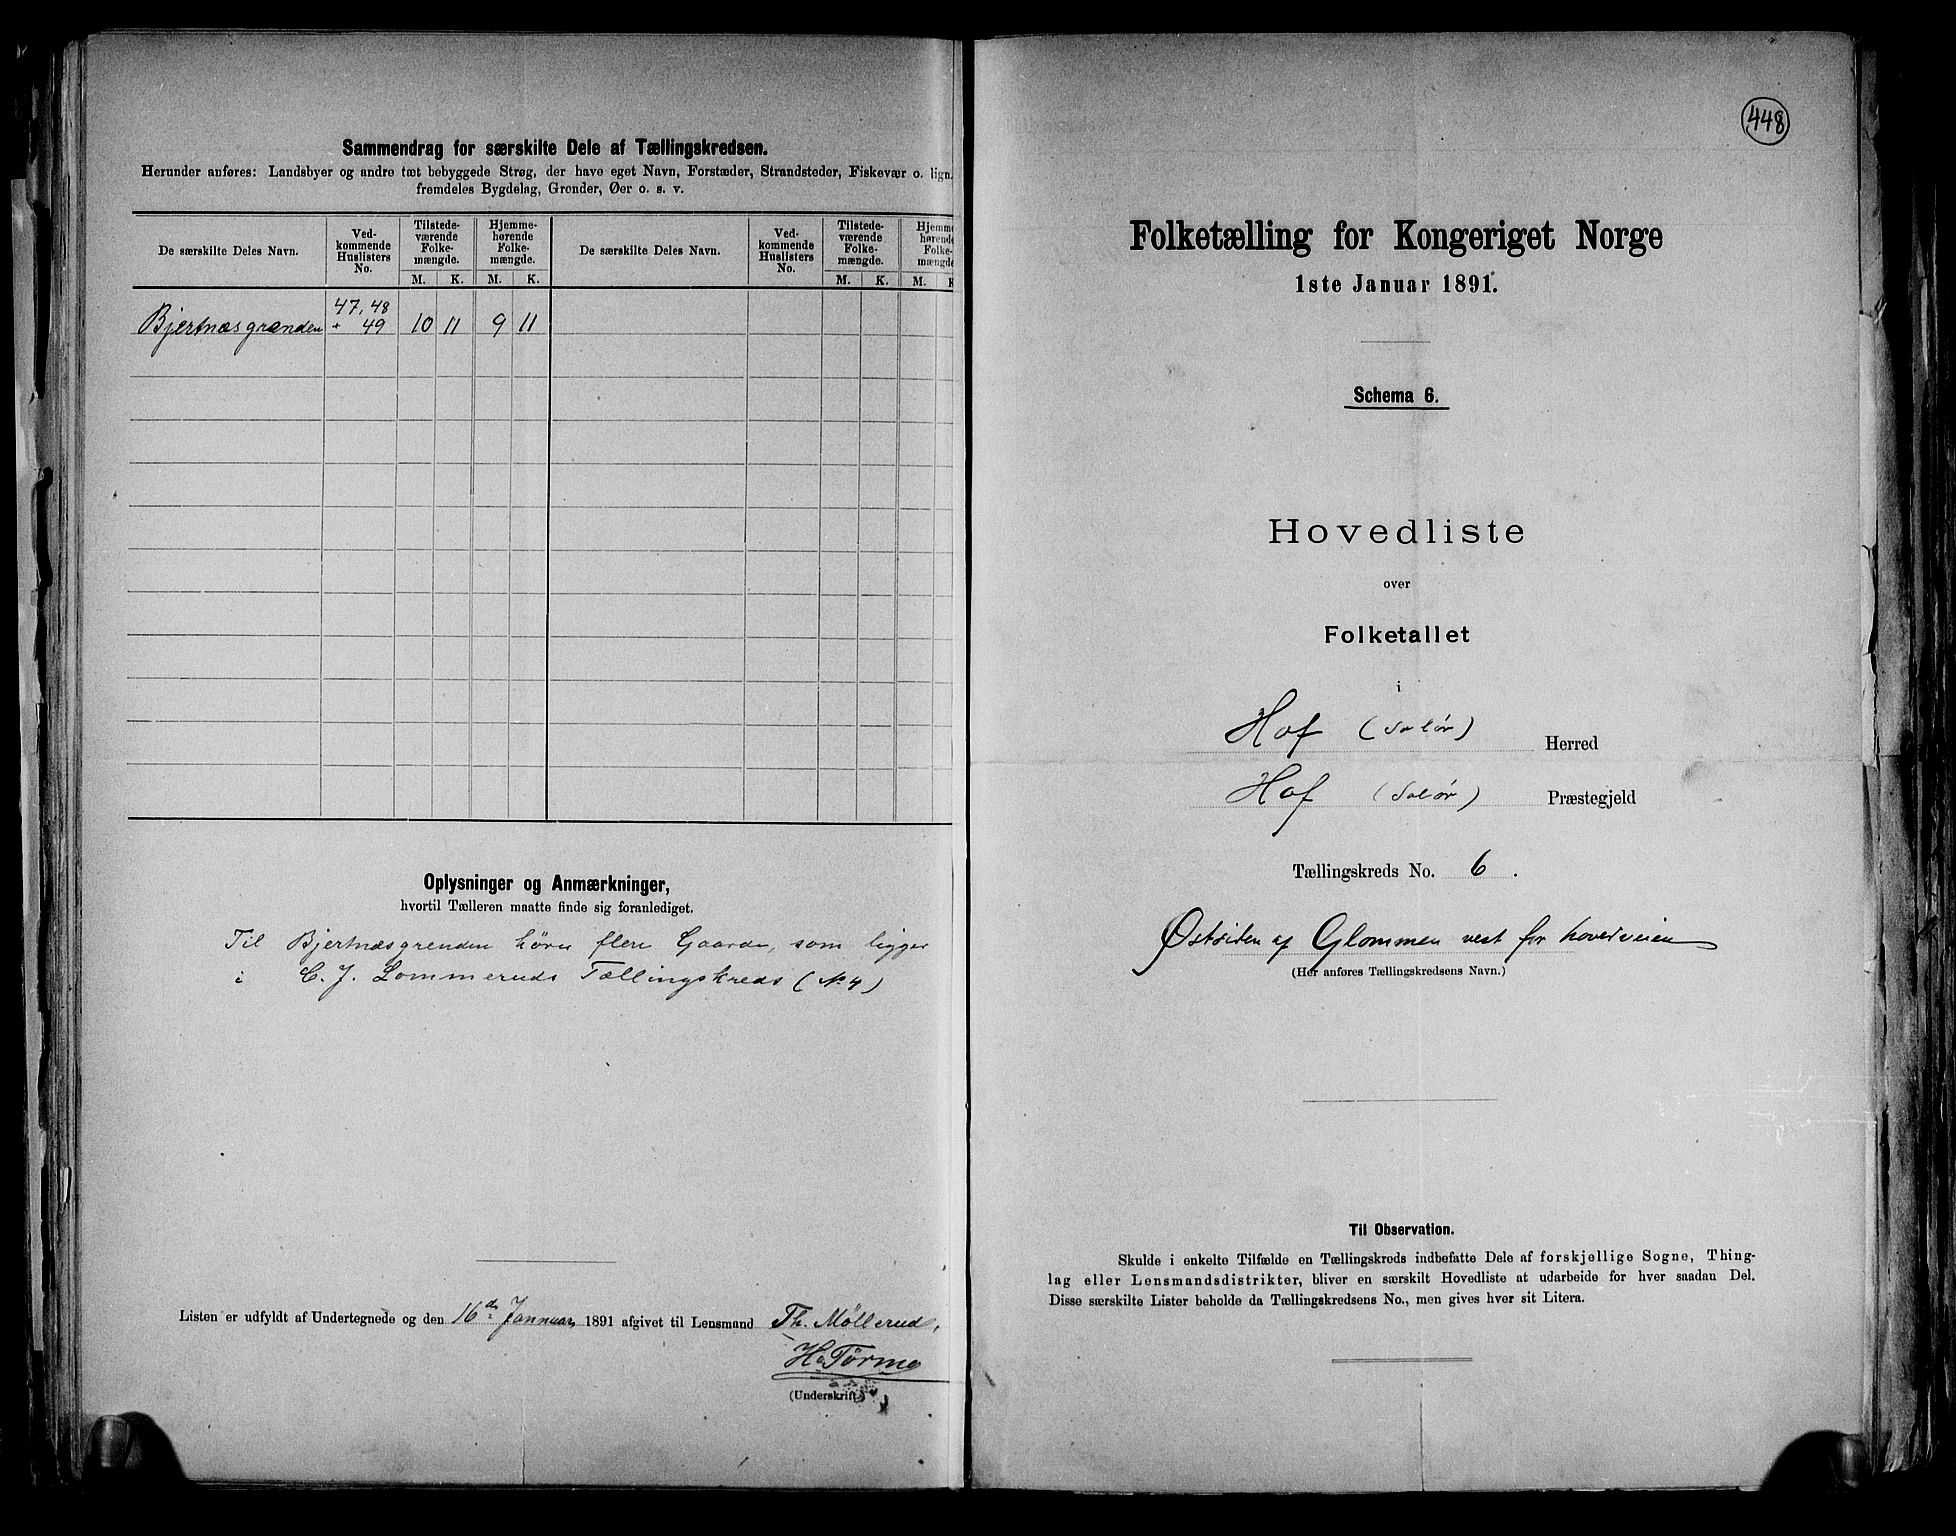 Sammendrag for særskilte Dele af Tællingskredsen.
Herunder anføres: Landsbyer og andre tæt bebyggede Strøg, der have eget Navn, Forstæder, Strandsteder, Fiskevær o. lign.
fremdeles Bygdelag, Grender, Øer o. s. v.
De særskilte Deles Navn.
Ved-
kommende
Huslisters
No.
Tilstede-
værende
Folke-
mængde.
Hjemme-
hørende
Folke-
mængde.
De særskilte Deles Navn.
Ved-
kommende
Huslisters
No.
Tilstede-
værende
Folke-
mængde.
Hjemme
hørende
Folke-
mængde
M. K. M. K. M. K. M. K
47, 48
Bjertnæsgrænden + 49 10 11 9 11
Oplysninger og Anmærkninger,
hvortil Tælleren maatte finde sig foranlediget.
Til Bjertnæsgrenden hører flere Gaarde, som ligger
i C. J. Lommeruds Tællingskreds (No 4)
Listen er udfyldt af Undertegnede og den 16de Januar 1891 afgivet til Lensmand Th. Møllerud.
(Underskrift)
448
Folketælling for Kongeriget Norge
1ste Januar 1891.
Schema 6.
Hovedliste
over
Folketallet
i
Hof (Solør) Herred
Hof (Solør) Præstegjeld
Tællingskreds No. 6.
Østsiden af Glommen vest for hovedveien
(Her anføres Tællingskredsens Navn.)
Til Observation.
Skulde i enkelte Tilfælde en Tællingskreds indbefatte Dele af forskjellige Sogne, Thing-
lag eller Lensmandsdistrikter, bliver en særskilt Hovedliste at udarbeide for hver saadan Del.
Disse særskilte Lister beholde da Tællingskredsens No., men gives hver sit Litera.